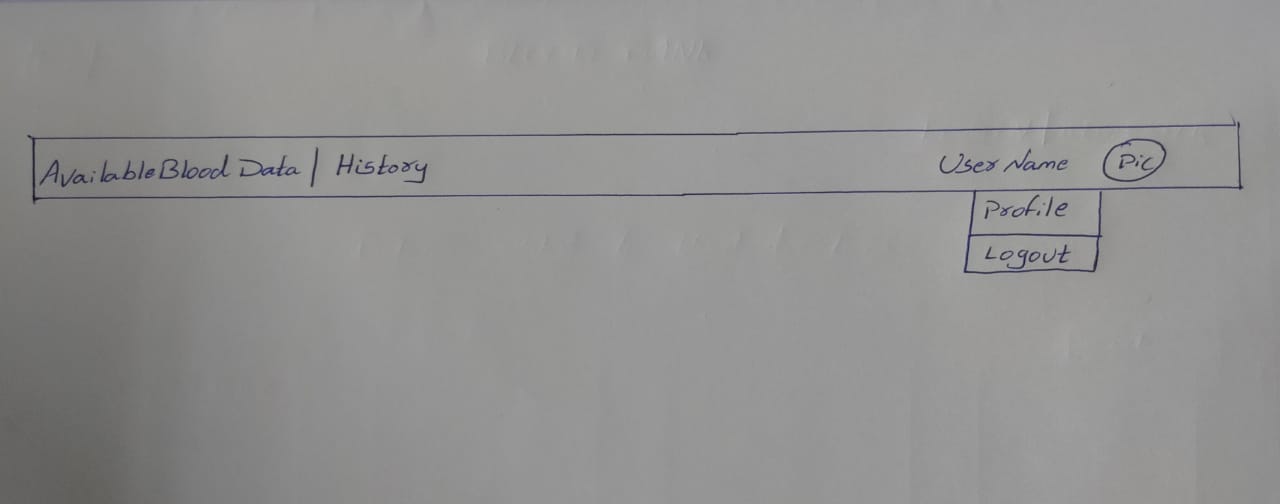 Available Blood Data | History User Name Pic
Profile
Logout